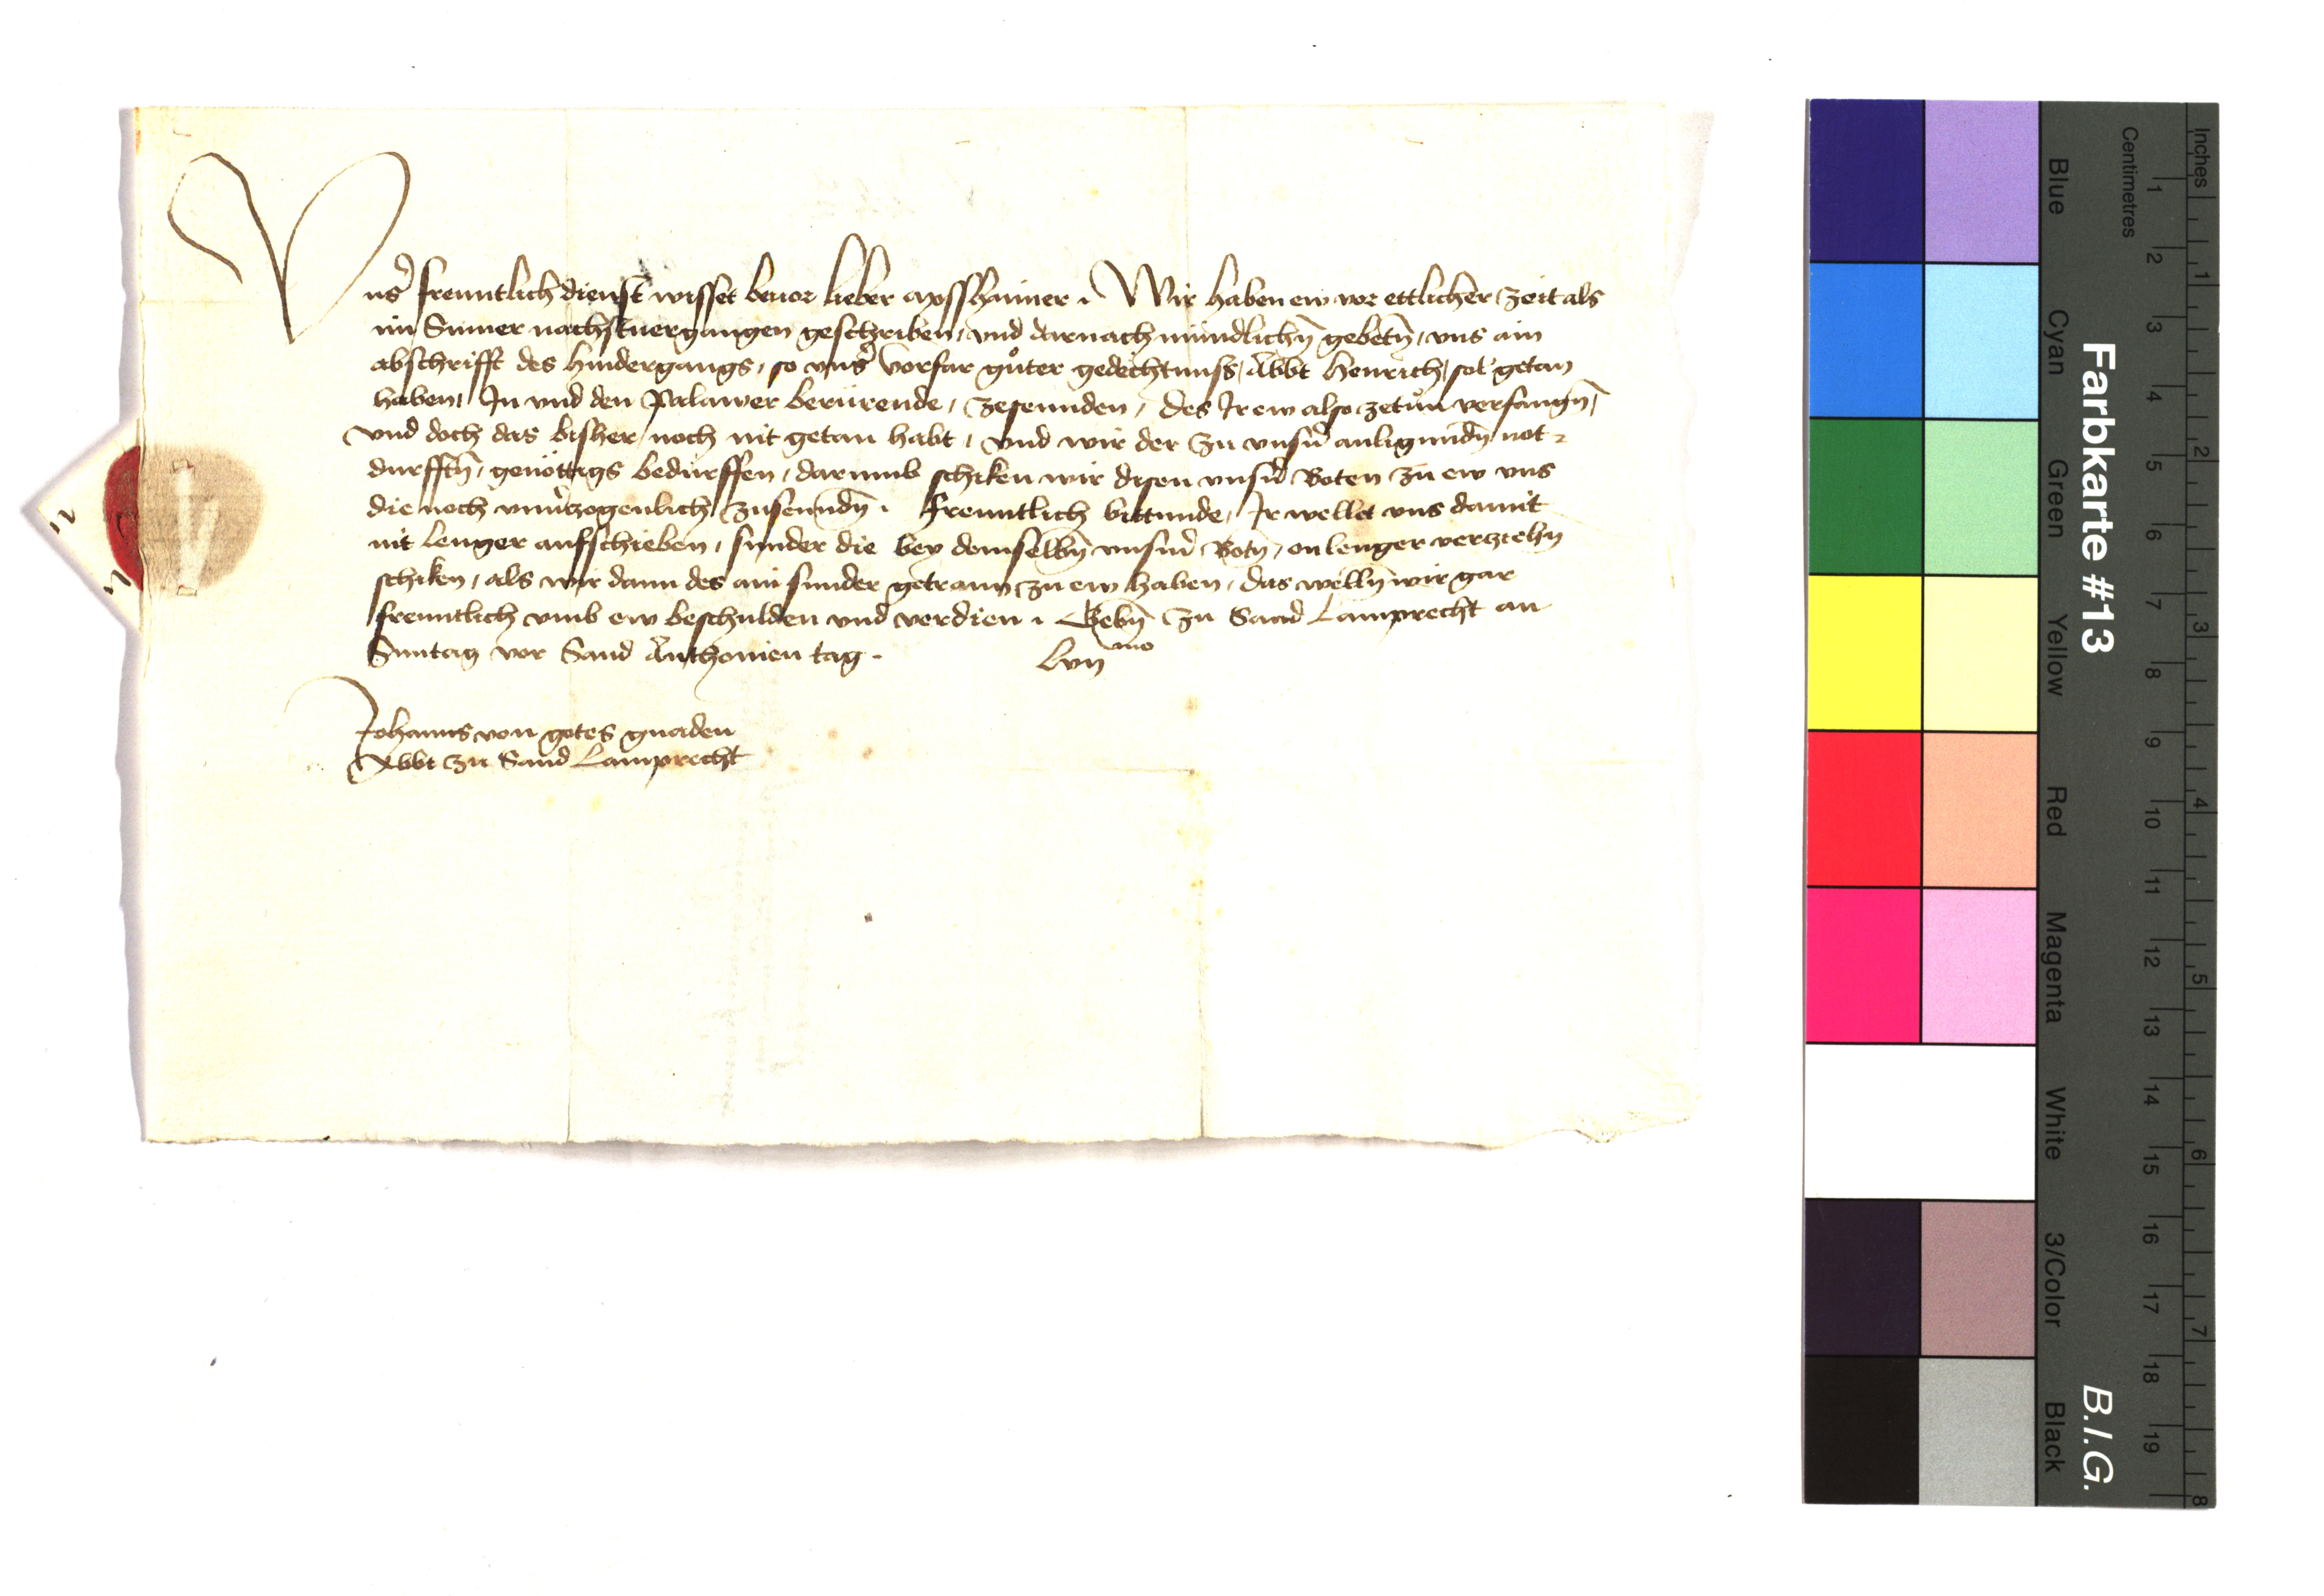 Vnsʼ frenntlich dienst wisset beuor lieber apsshaimer . Wir haben ew vor ettlicher zeit als
im Sumer nachstuergangen geschriben, vnd darnach mundlichn̄ gebetn̄, vns ain
abschrifft des hindergangs, so vnsʼ vorfar gůter gedechtnuss, Abbt Henrich, sol getan
haben, In vnd den Palawer berürende, zesennden, des Ir ew also zetůn verfangn̄,
vnd doch das bisher noch nit getan habt, vnd wir der zu vnsʼn anligundn̄ not-
durfftn̄, genöttigs bedurffen, darumb schiken wir disen vnsʼn Boten zu ew vns
die noch vnuʼzogenlich zusenndn̄ . frenntlich bittunde, Ir wellet vns damit
nit lenger aufschieben, sunder die bey demselbn̄ vnsʼm Botn̄, on lenger verziehn
schiken, als wir dann des ain sunder getrawn zu ew haben, das welln̄ wir gar
frenntlich vmb ew beschulden vnd verdien . Gebn̄ zu Sand Lamprecht an
Suntag vor Sand Anthonien tag . Lvijmo
Johanns von gotes gnaden
Abbt zu Sand Lamprecht
Inches
Centimetres
1 2 3 4 5 6 7 8
1 2 3 4 5 6 7 8 9 10 11 12 13 14 15 16 17 18 19
Farbkarte #13 B.I.G.
Blue Cyan Green Yellow Red Magenta White 3/Color Black